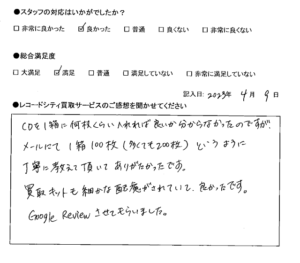 ●スタッフの対応はいかがでしたか？
□非常に良かった ☑良かった □普通 □良くない □非常に良くない
●総合満足度
□大満足 ☑満足 □普通 □満足していない □非常に満足していない
記入日: 2023年 4月 9日
●レコードシティ買取サービスのご感想を聞かせてください
CDを1箱に何枚くらい入れれば良いか分からなかったのですが、
メールにて1箱100枚(多くても200枚)というように
丁寧に教えて頂いてありがたかったです。
買取キットも細かな配慮がされていて、良かったです。
Google Reviewさせてもらいました。